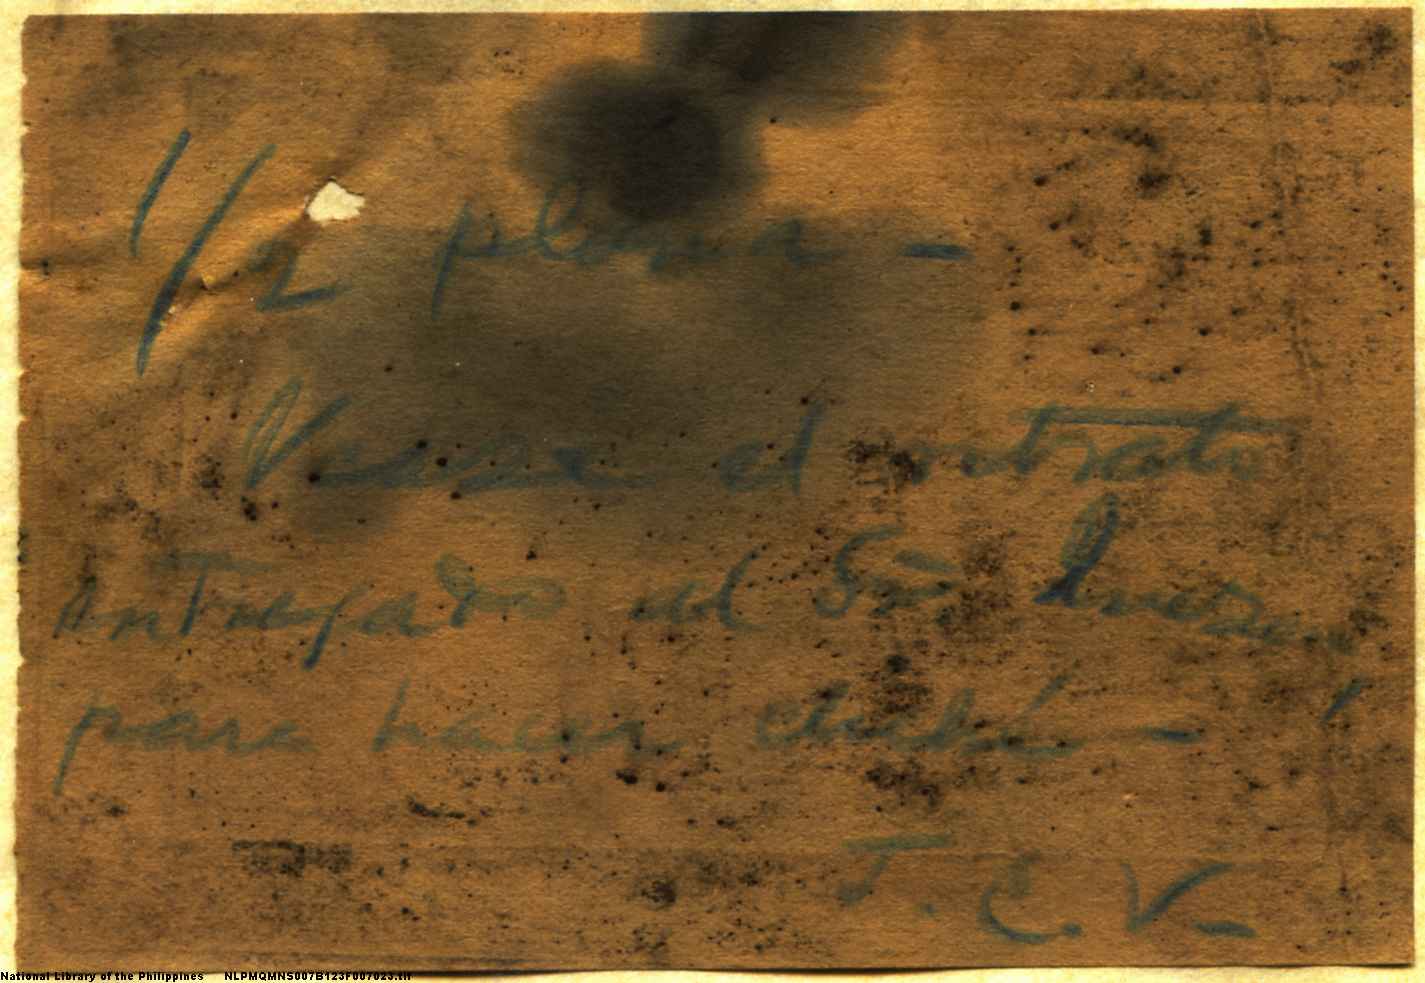 1/2 plana —
Vease el retrato
entregado al Sr.
para hacer clisé —
J. C. V.
National Library of the Philippines NLPMQMNS007B123F007023.tif